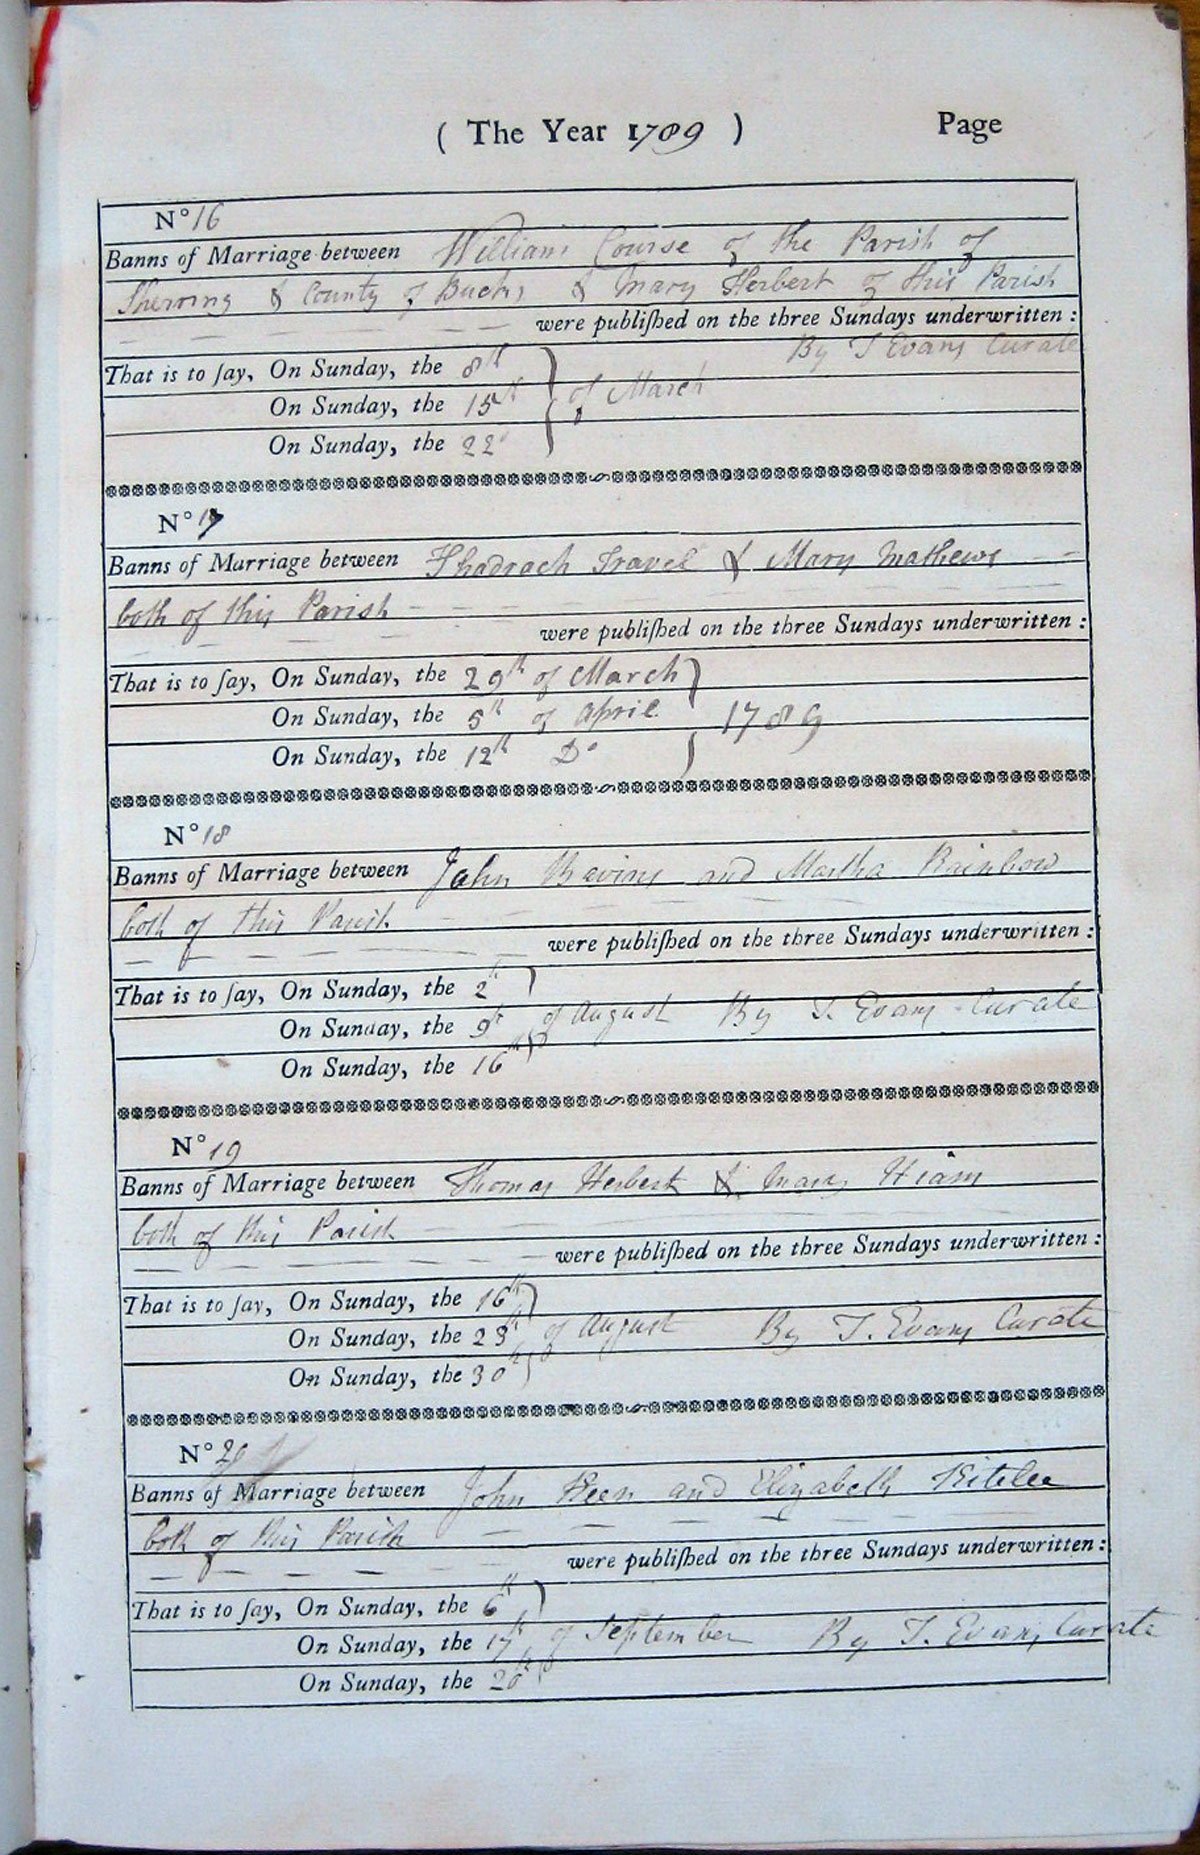 ( The Year 1789 ) Page
N° 16
Banns of Marriage between William Course of the Parish of
Sherring & County of Bucks & Mary Herbert of this Parish
were publiſhed on the three Sundays underwritten :
By T Evans Curate
That is to ſay, On Sunday, the 8th
On Sunday, the 15th } of March
On Sunday, the 22d
N° 17
Banns of Marriage between Shadrach Travel & Mary Mathews
both of this Parish
were publiſhed on the three Sundays underwritten :
That is to ſay, On Sunday, the 29th of March
On Sunday, the 5th of April } 1789
On Sunday, the 12th Do
N° 18
Banns of Marriage between John Bavins and Martha Rainbow
both of this Parish
were publiſhed on the three Sundays underwritten :
That is to ſay, On Sunday, the 2d
On Sunday, the 9th } of August By T. Evans Curate
On Sunday, the 16th
N° 19
Banns of Marriage between Thomas Herbert & Mary Hiam
both of this Parish
were publiſhed on the three Sundays underwritten :
That is to ſay, On Sunday, the 16th
On Sunday, the 23d } of August By T. Evans Curate
On Sunday, the 30th
N° 20
Banns of Marriage between John Keen and Elizabeth Kitelee
both of this Parish
were publiſhed on the three Sundays underwritten :
That is to ſay, On Sunday, the 6th
On Sunday, the 17th } of September By T. Evans Curate
On Sunday, the 20th